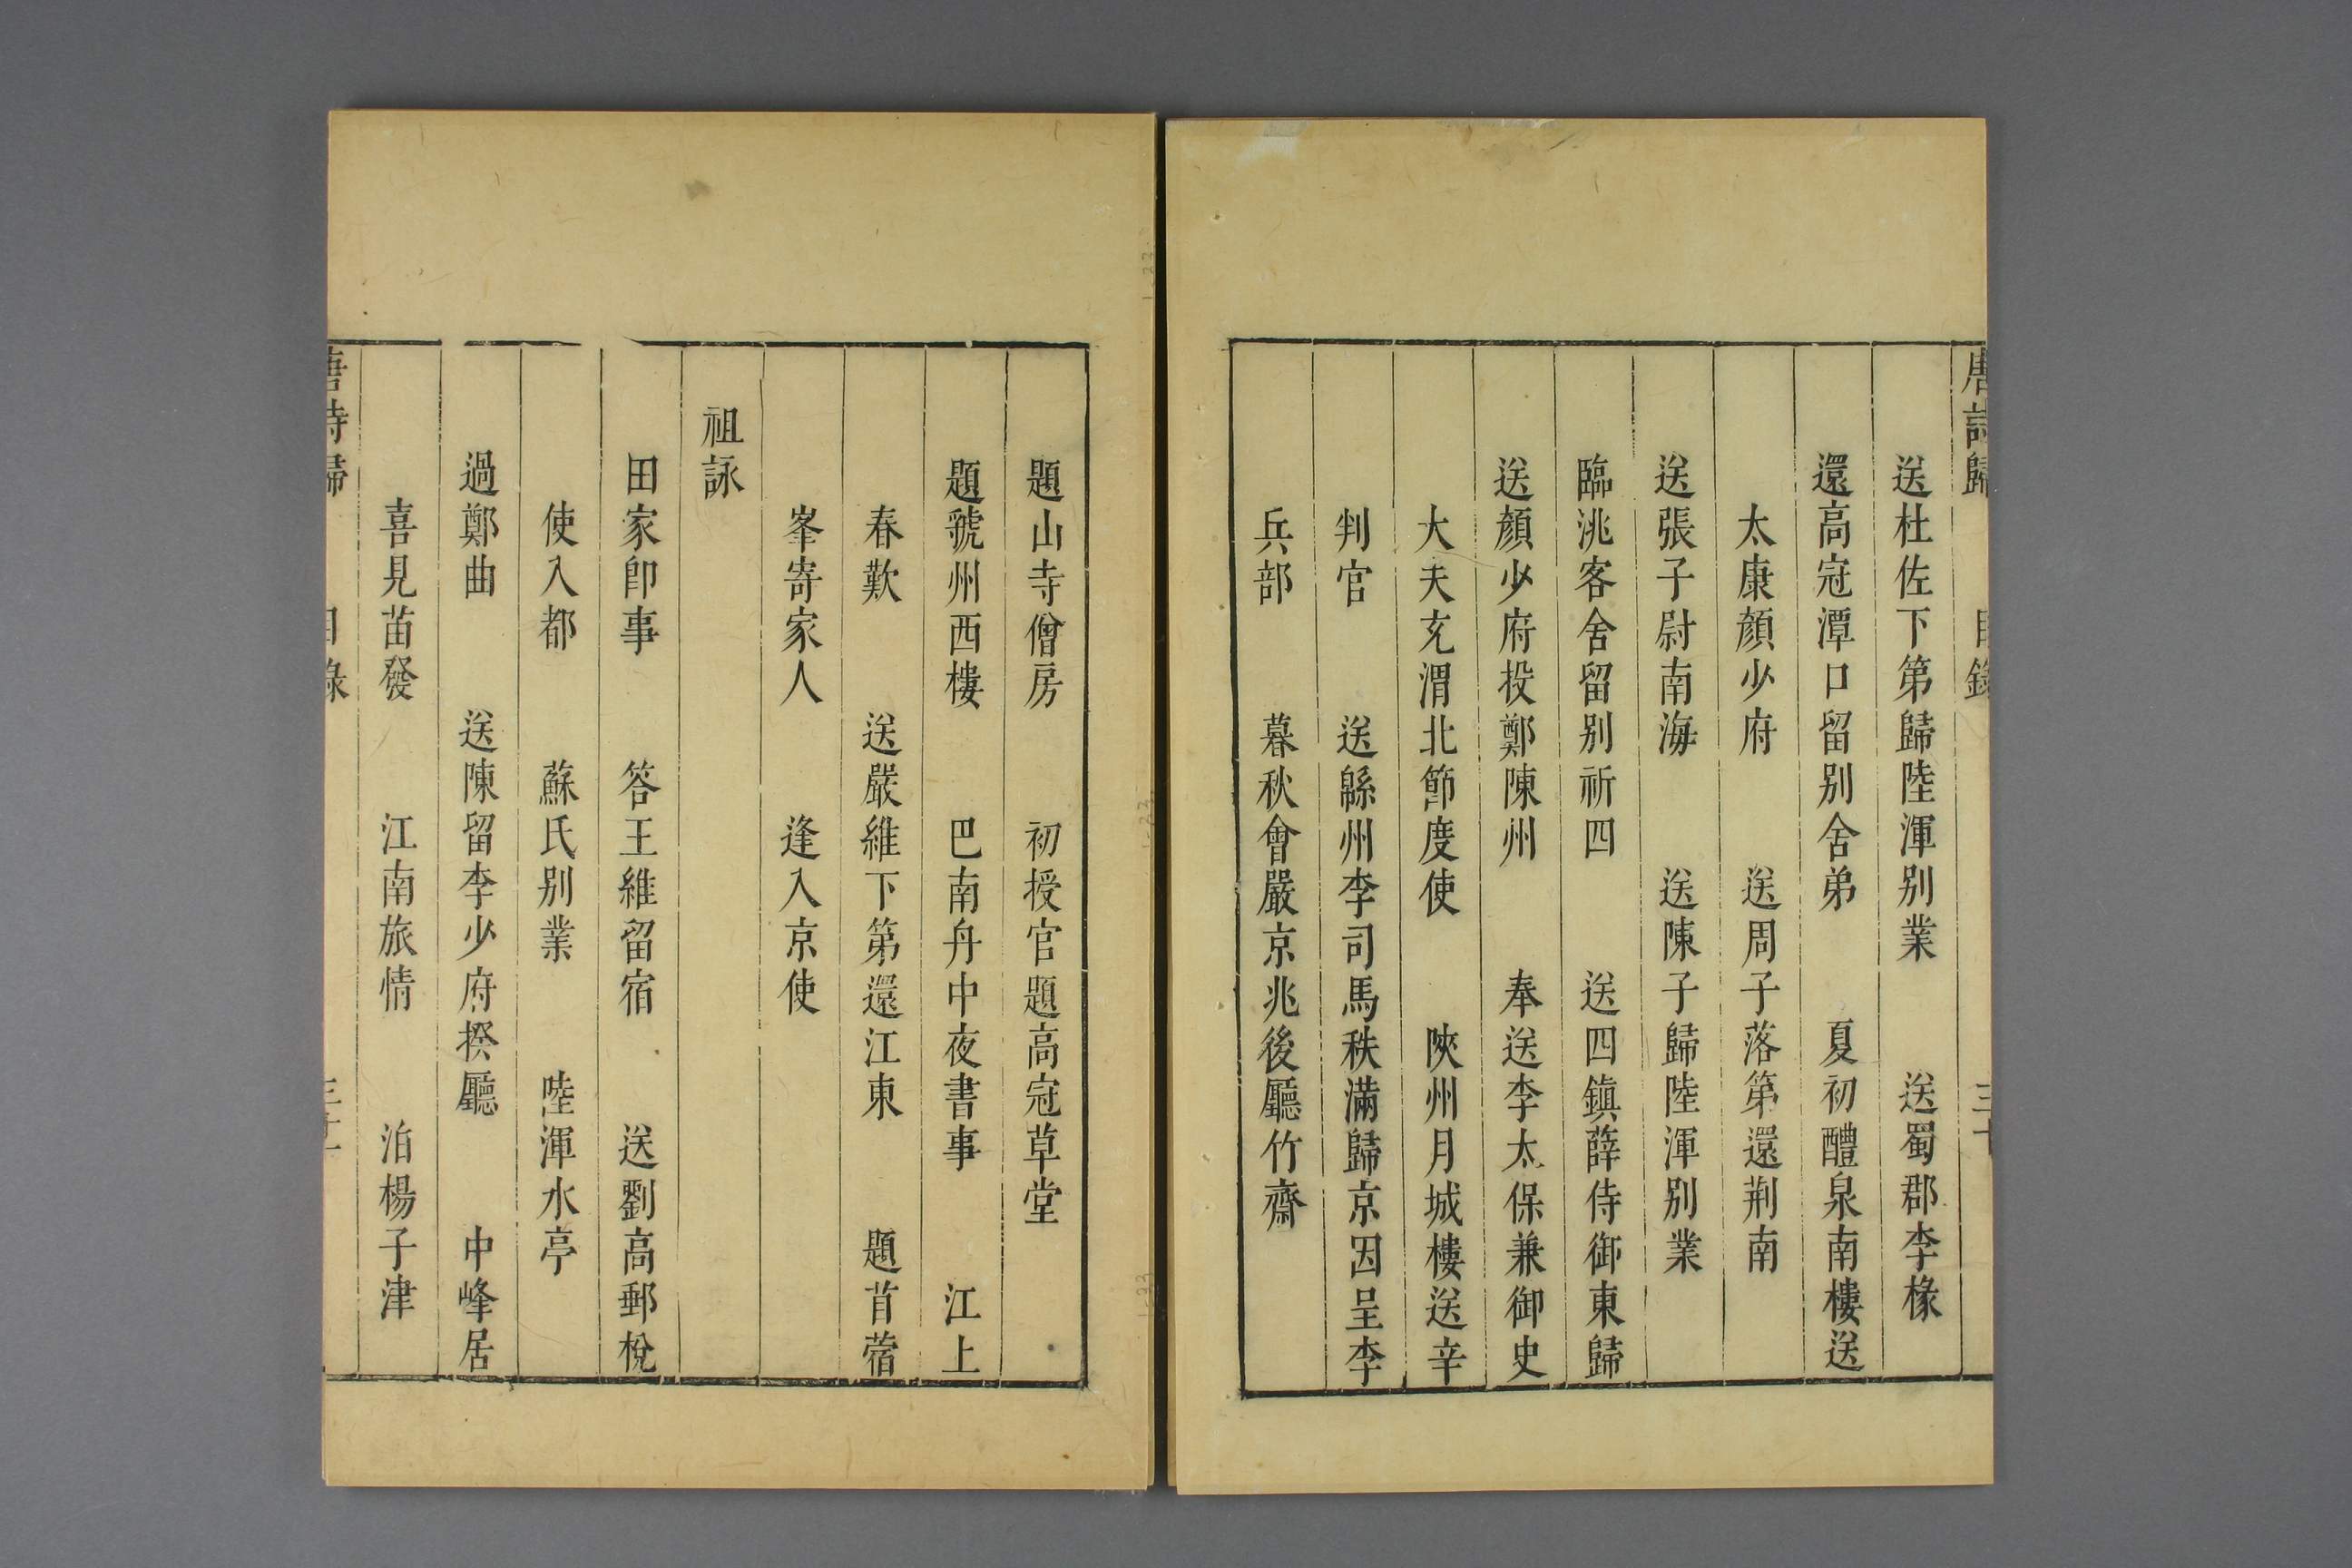 唐詩歸 目錄 三十
送杜佐下第歸陸渾别業 送蜀郡李椽
還高冠潭口留别舍弟 夏初醴泉南樓送
太康顏少府 送周子落第還荆南
送張子尉南海 送陳子歸陸渾别業
臨洮客舍留别祈四 送四鎮薛侍御東歸
送顏少府投鄭陳州 奉送李太保兼御史
大夫充渭北節度使 陝州月城樓送辛
判官 送緜州李司馬秩滿歸京因呈李
兵部 暮秋會嚴京兆後廳竹齋
題山寺僧房 初授官題高冠草堂
題虢州西樓 巴南舟中夜書事 江上
春歎 送嚴維下第還江東 題苜蓿
峯寄家人 逢入京使
祖詠
田家卽事 答王維留宿 送劉高郵梲
使入都 蘇氏别業 陸渾水亭
過鄭曲 送陳留李少府揆廳 中峰居
喜見苗發 江南旅情 泊楊子津
唐詩歸 目錄 三十一